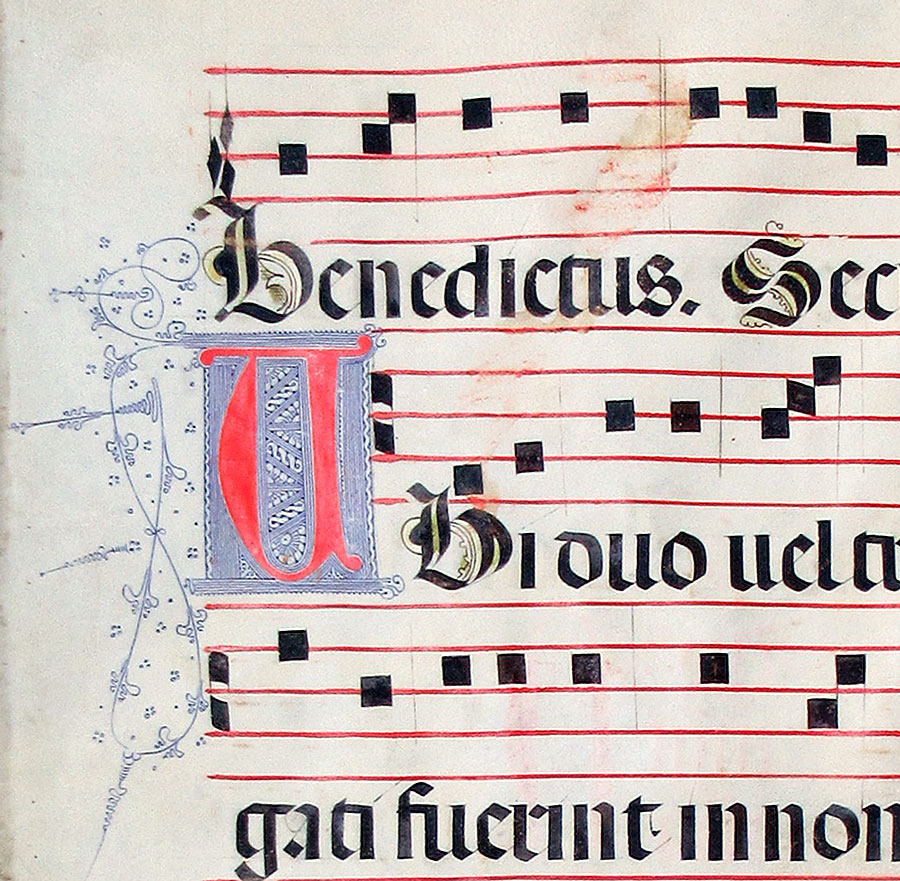 Benedictus. Sec
UBi duo uel
gati fuerint in nom